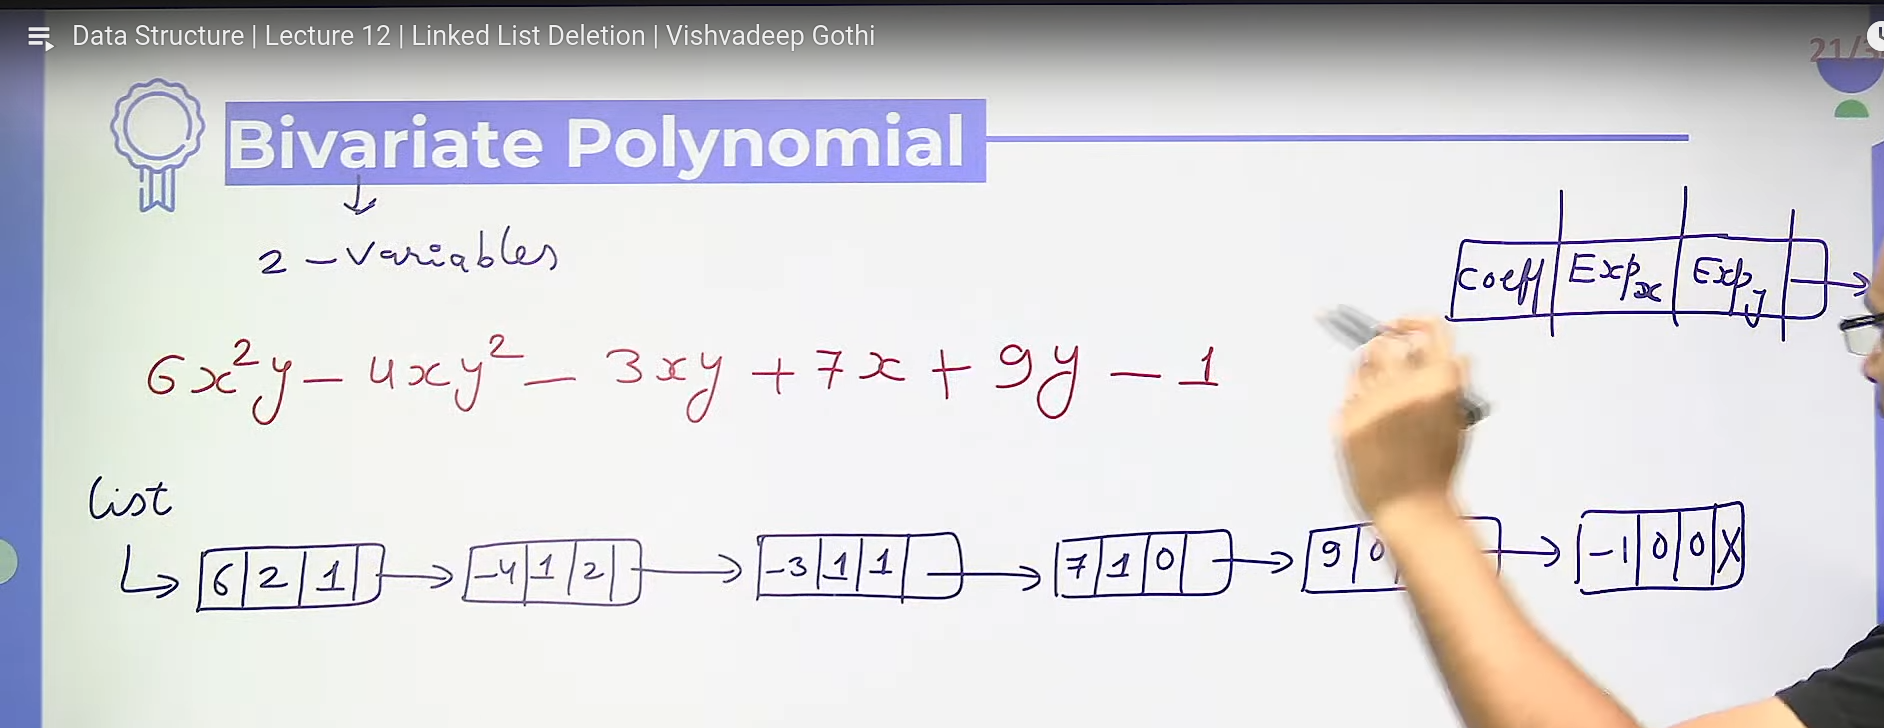 Data Structure | Lecture 12 | Linked List Deletion | Vishvadeep Gothi
21/3
Bivariate Polynomial
2 - variables
Coeff Expx Expy
6x²y - 4xy² - 3xy + 7x + 9y - 1
list
6 2 1 → -4 1 2 → -3 1 1 → 7 1 0 → 9 0 → -1 0 0 X